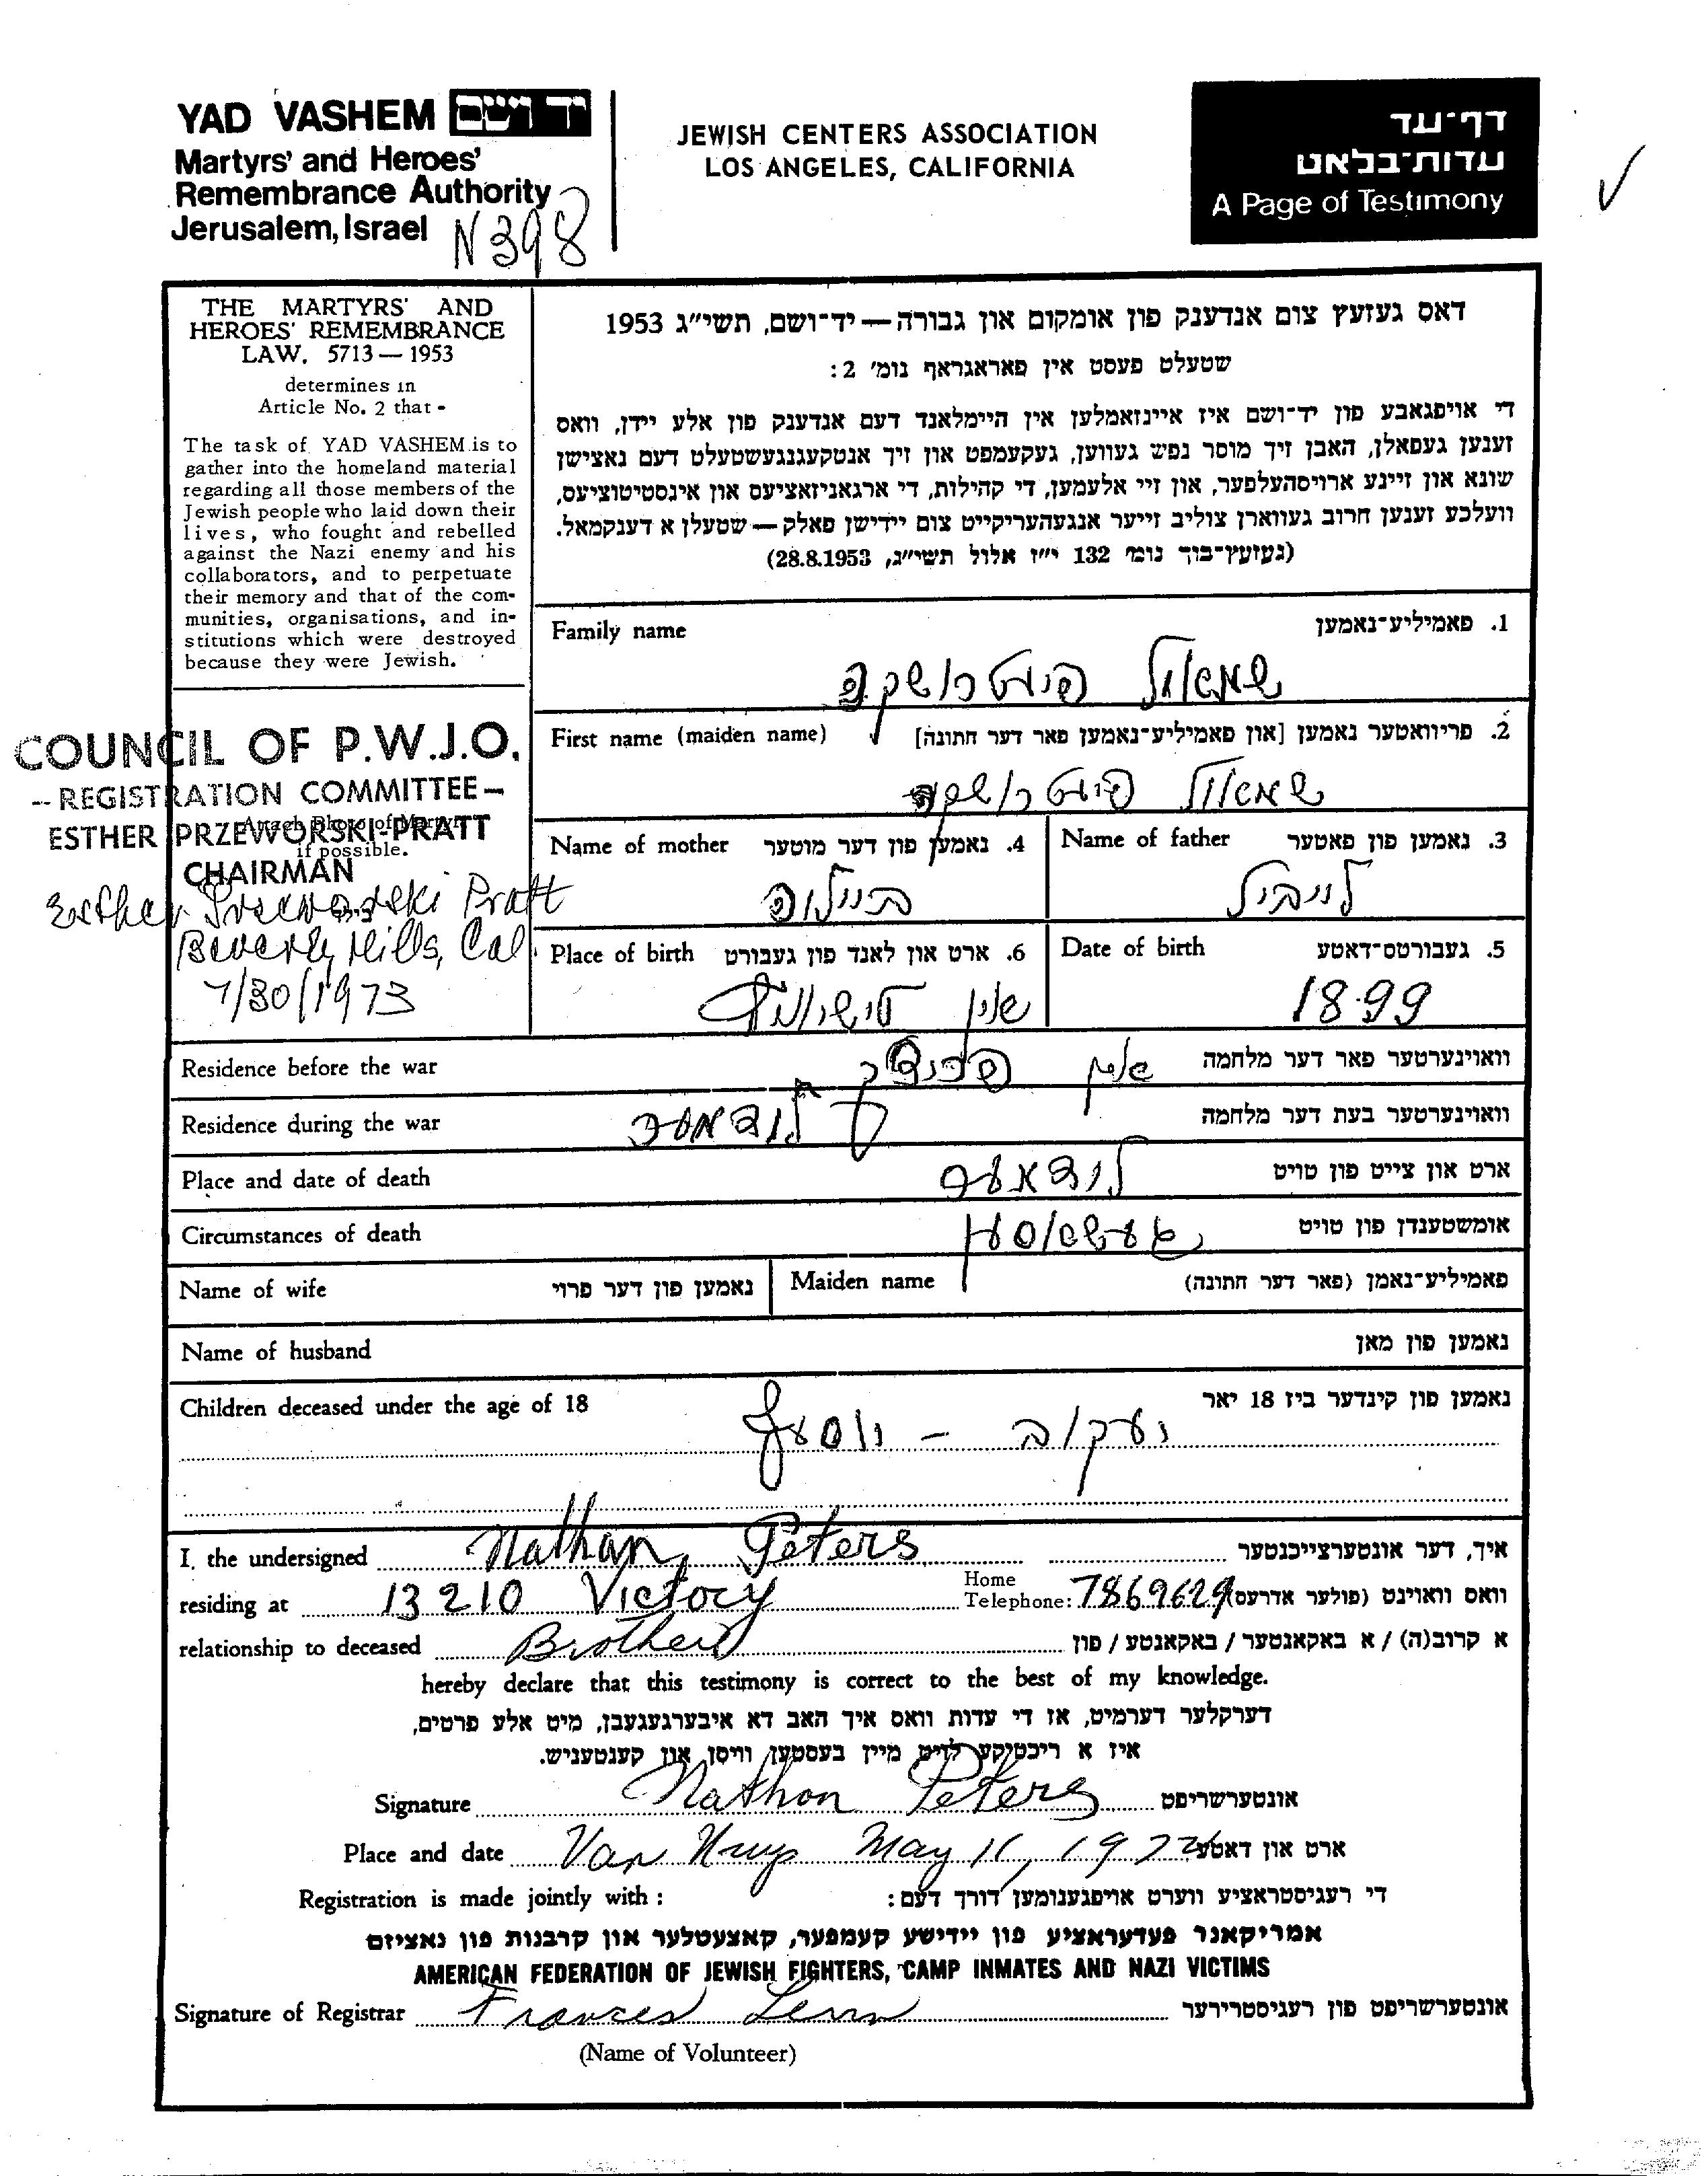 YAD VASHEM יד ושם
Martyrs' and Heroes'
Remembrance Authority
Jerusalem, Israel
N398
JEWISH CENTERS ASSOCIATION
LOS ANGELES, CALIFORNIA
דף־עד
עדות־בלאט
A Page of Testimony
THE MARTYRS' AND
HEROES' REMEMBRANCE
LAW, 5713 — 1953
determines in
Article No. 2 that -
The task of YAD VASHEM is to
gather into the homeland material
regarding all those members of the
Jewish people who laid down their
lives, who fought and rebelled
against the Nazi enemy and his
collaborators, and to perpetuate
their memory and that of the com-
munities, organisations, and in-
stitutions which were destroyed
because they were Jewish.
דאס געזעץ צום אנדענק פון אומקום און גבורה — יד־ושם, תשי״ג 1953
שטעלט פעסט אין פאראגראף נומ׳ 2:
די אויפגאבע פון יד־ושם איז איינזאמלען אין היימלאנד דעם אנדענק פון אלע יידן, וואס
זענען געפאלן, האבן זיך מוסר נפש געווען, געקעמפט און זיך אנטקעגנגעשטעלט דעם נאצישן
שונא און זיינע ארויסהעלפער, און זיי אלעמען, די קהילות, די ארגאניזאציעס און אינסטיטוציעס,
וועלכע זענען חרוב געווארן צוליב זייער אנגעהעריקייט צום יידישן פאלק — שטעלן א דענקמאל.
(געזעץ־בוך נומ׳ 132 י״ז אלול תשי״ג, 28.8.1953)
COUNCIL OF P.W.J.O.
-- REGISTRATION COMMITTEE --
ESTHER PRZEWORSKI-PRATT
Attach Photo of Martyr
if possible.
CHAIRMAN
Esther Przeworski Pratt
Beverly Hills, Cal.
7/30/1973
Family name
1. פאמיליע־נאמען
שמאול
First name (maiden name)
2. פריוואטער נאמען [און פאמיליע־נאמען פאר דער חתונה]
שמאול
Name of mother
4. נאמען פון דער מוטער
בײלע
Name of father
3. נאמען פון פאטער
לייביל
Place of birth
6. ארט און לאנד פון געבורט
Date of birth
5. געבורטס־דאטע
1899
Residence before the war
וואוינערטער פאר דער מלחמה
Residence during the war
וואוינערטער בעת דער מלחמה
Place and date of death
ארט און צייט פון טויט
Circumstances of death
אומשטענדן פון טויט
Name of wife
נאמען פון דער פרוי
Maiden name
פאמיליע־נאמן (פאר דער חתונה)
Name of husband
נאמען פון מאן
Children deceased under the age of 18
נאמען פון קינדער ביז 18 יאר
יעקוב – יוסעף
I, the undersigned Nathan Peters איך, דער אונטערצייכנטער
residing at 13210 Victory Home Telephone: 7869629 וואס וואוינט (פולער אדרעס)
relationship to deceased Brother א קרוב(ה) / א באקאנטער / באקאנטע / פון
hereby declare that this testimony is correct to the best of my knowledge.
דערקלער דערמיט, אז די עדות וואס איך האב דא איבערגעגעבן, מיט אלע פרטים,
איז א ריכטיקע לויט מיין בעסטען וויסן און קענטעניש.
Signature Nathan Peters אונטערשריפט
Place and date Van Nuys May 11, ארט און דאטע
Registration is made jointly with :
די רעגיסטראציע ווערט אויפגענומען דורך דעם:
אמריקאנר פעדעראציע פון יידישע קעמפער, קאצעטלער און קרבנות פון נאציזם
AMERICAN FEDERATION OF JEWISH FIGHTERS, CAMP INMATES AND NAZI VICTIMS
Signature of Registrar Frances אונטערשריפט פון רעגיסטרירער
(Name of Volunteer)